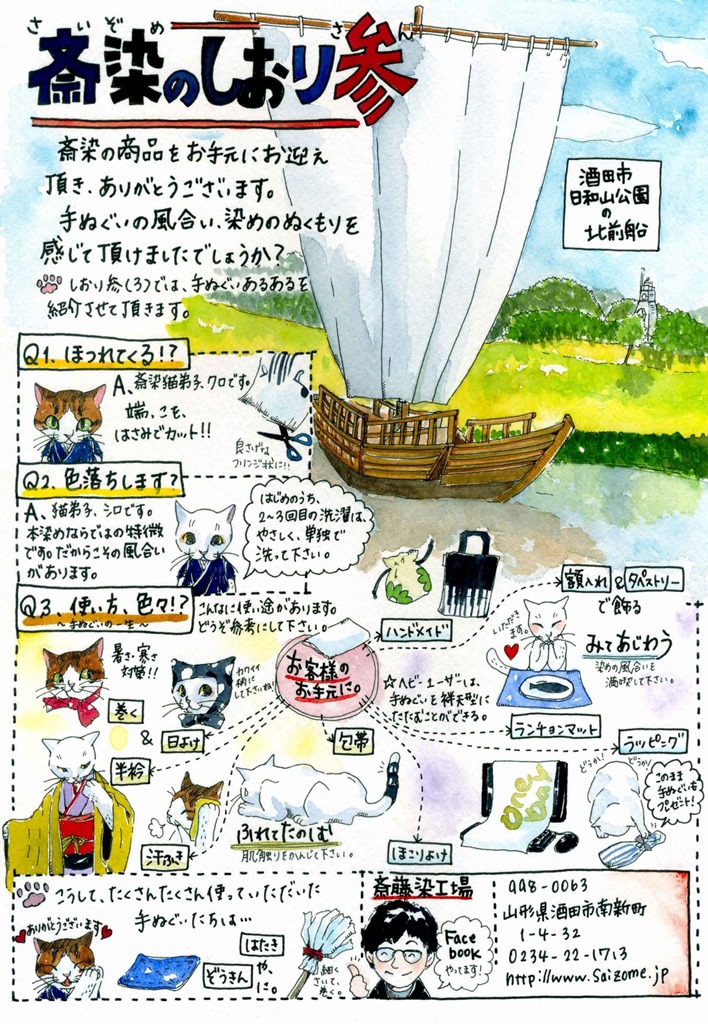 さいぞめ さん
斎染のしおり参
斎染の商品をお手元にお迎え
頂き、ありがとうございます。
手ぬぐいの風合い、染めのぬくもりを
感じて頂けましたでしょうか?
しおり参(3)では、手ぬぐいあるあるを
紹介させて頂きます。
酒田市
日和山公園
の
北前船
Q1、ほつれてくる!?
A、斎染猫弟子、クロです。
端っこを、
はさみでカット!!
良さげな
フリンジ状に!!
Q2、色落ちします?
A、猫弟子、シロです。
本染めならではの特徴
です。だからこその風合い
があります。
はじめのうち、
2~3回目の洗濯は、
やさしく、単独で
洗って下さい。
Q3、使い方、色々!?
~手ぬぐいの一生~
こんなに使い途があります。
どうぞ参考にして下さい。
ハンドメイド
額入れ & タペストリー
で飾る
いただき
ます。
みてあじわう
染めの風合いを
満喫して下さい。
暑さ・寒さ
対策!!
巻く
&
日よけ
カワイイ
柄に
して下さいね!
お客様の
お手元に。
☆ヘビーユーザーは、
手ぬぐいを袢天型に
たたむことができる。
ランチョンマット
ラッピング
半衿
包帯
汗ふき
ふれてたのしむ
肌触りをかんじて下さい。
ほこりよけ
どうか!
どうか!
このまま
手ぬぐいも
プレゼント!
こうして、たくさんたくさん使っていただいた
手ぬぐいたちは…
ありがとうございます
ぞうきん
や、
はたき
に。
細く
さいて、
巻く。
斎藤染工場
Face
book
やってます!
998-0063
山形県酒田市南新町
1-4-32
0234-22-1713
http://www.saizome.jp